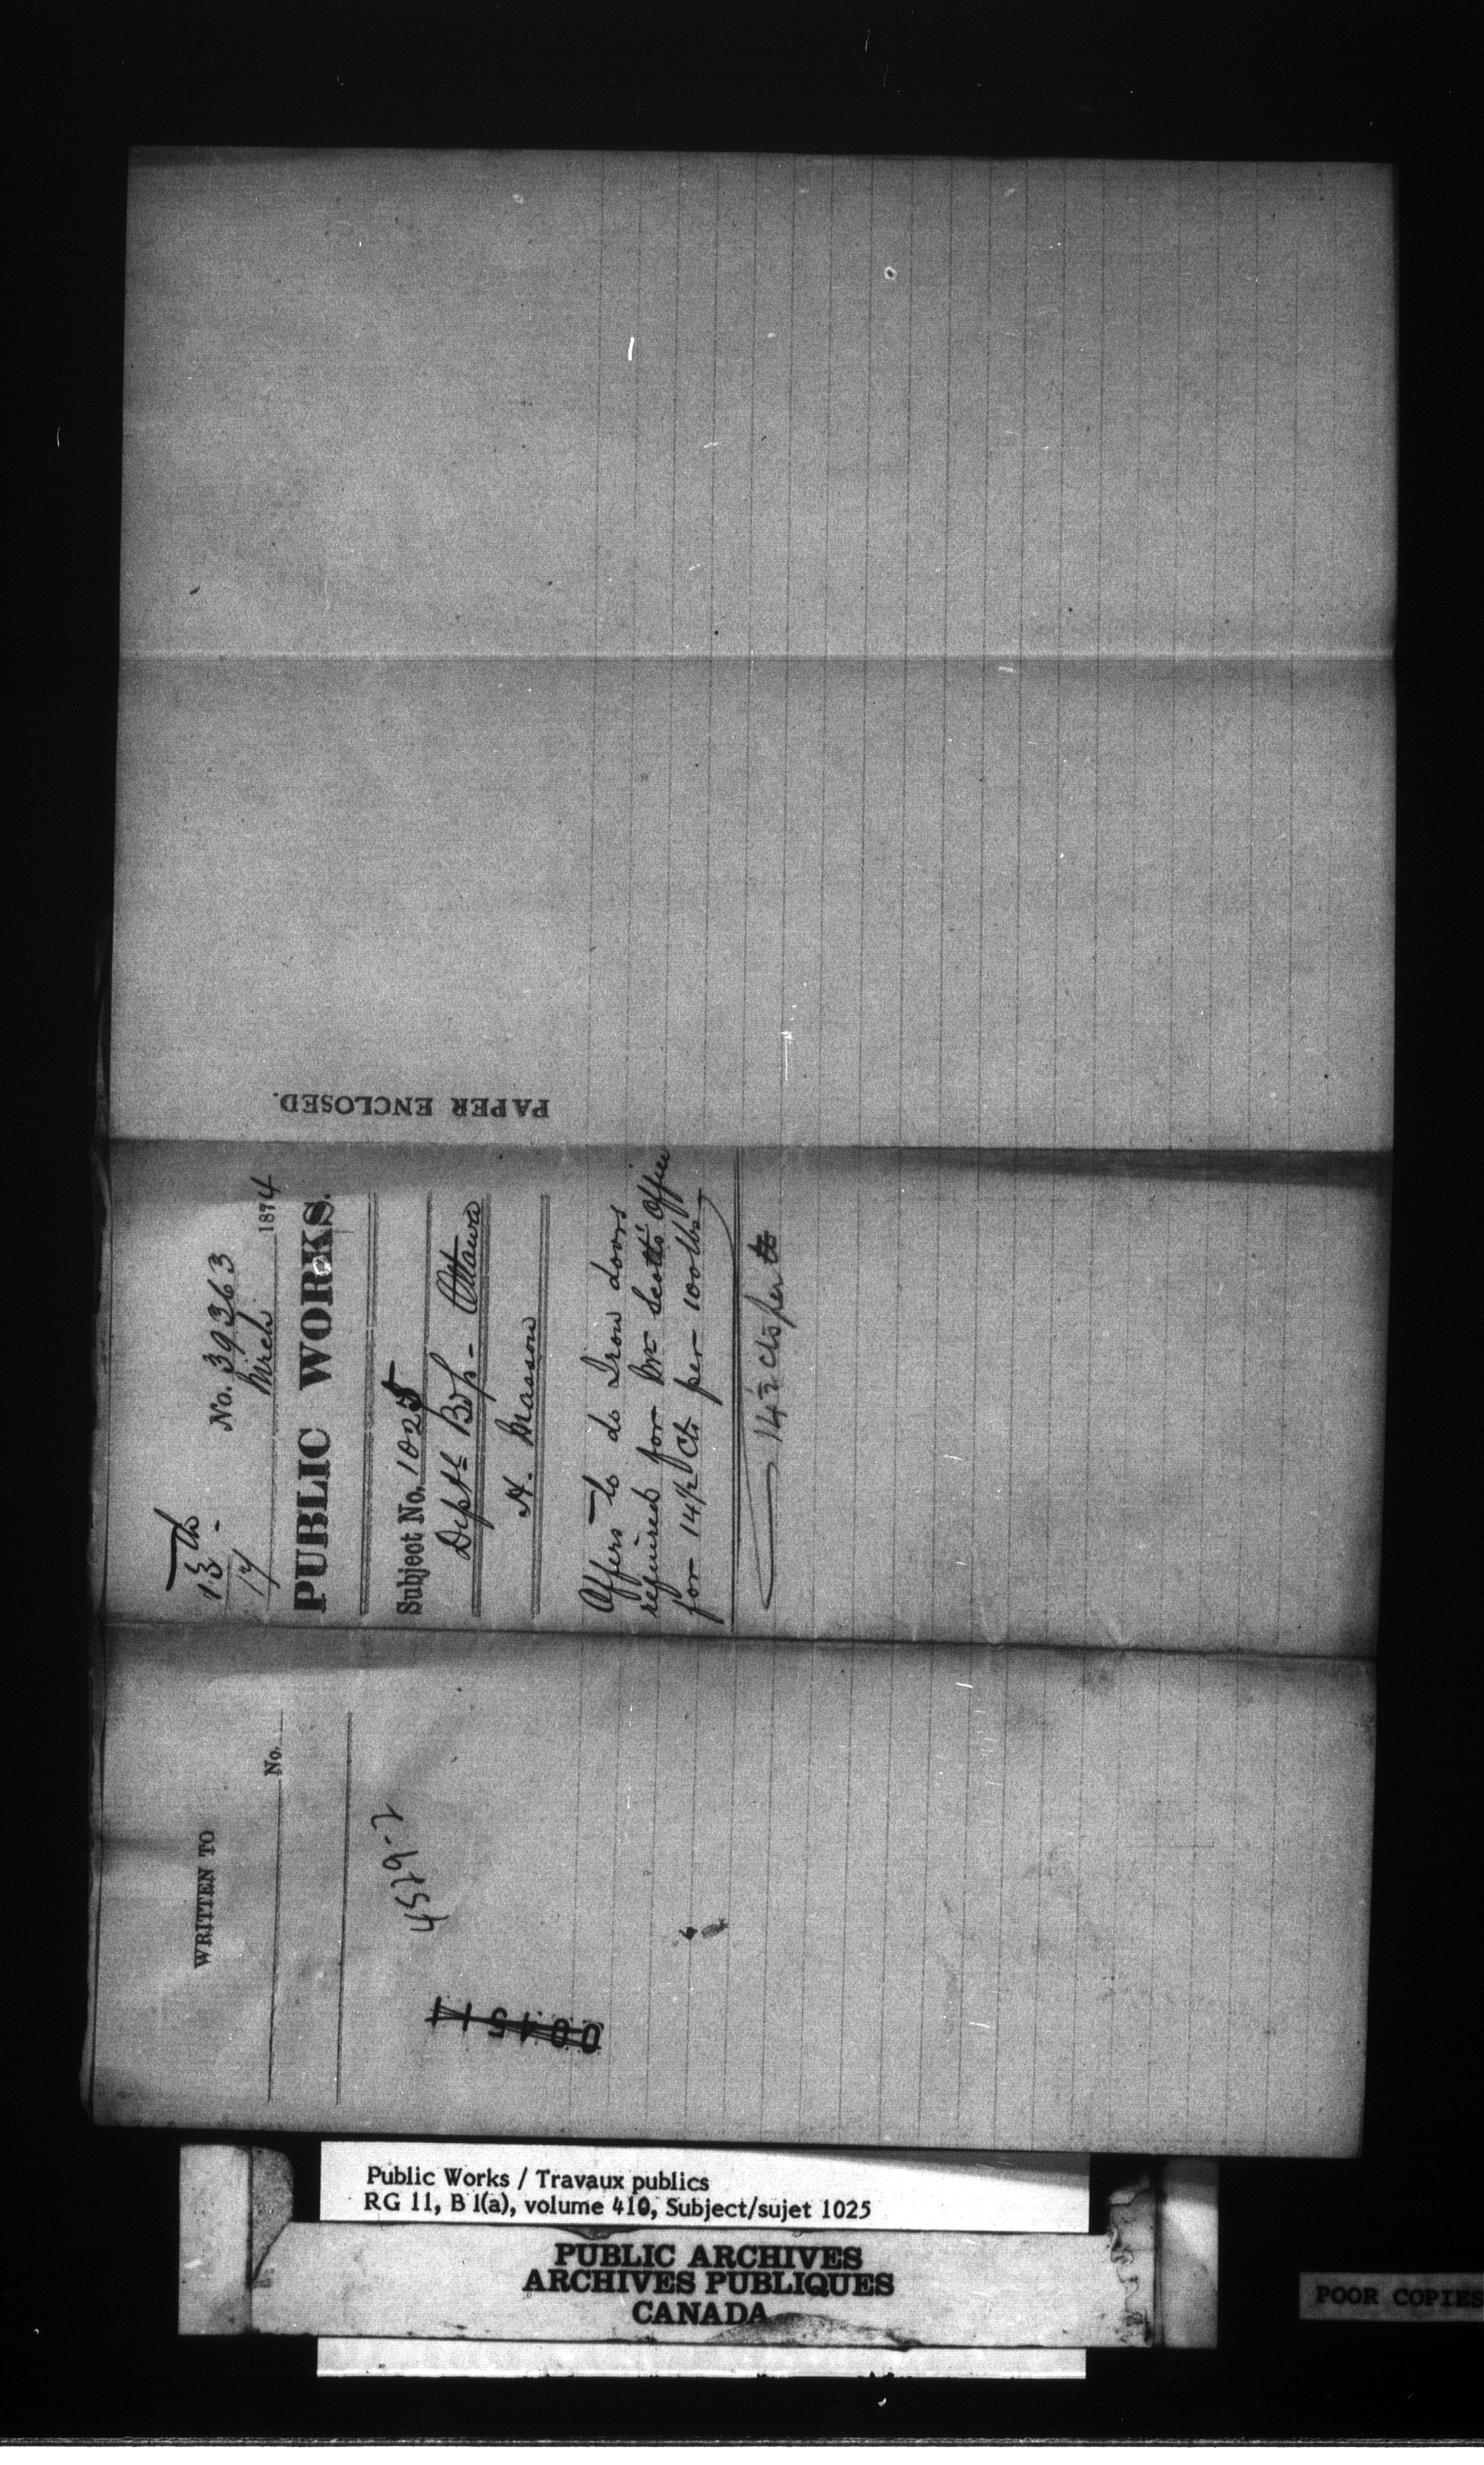 PAPER ENCLOSED.
13th
17
No. 39363
March 1874
PUBLIC WORKS.
Subject No. 1025
Deptl Bdgs - Ottawa
A. Masson
Offers to do Iron doors
required for Mr Scott's Office
for 14½ Cts per 100 lbs
14½ cts per lb
WRITTEN TO
No.
4579-2
Public Works / Travaux publics
RG 11, B 1(a), volume 410, Subject/sujet 1025
PUBLIC ARCHIVES
ARCHIVES PUBLIQUES
CANADA
POOR COPIES